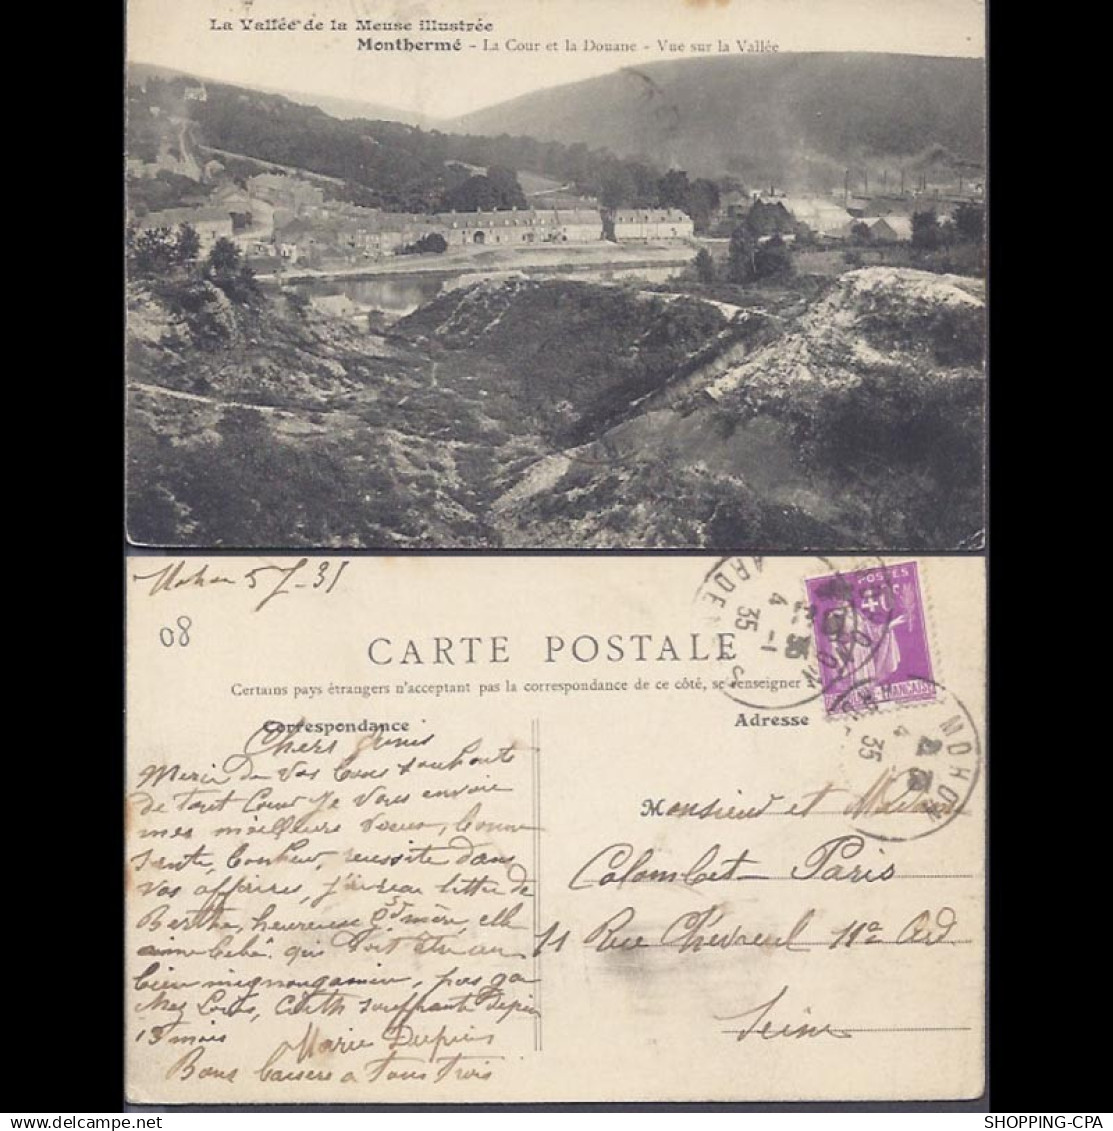 La Vallée de la Meuse illustrée
Monthermé - La Cour et la Douane - Vue sur la Vallée
Mohon 5/1-35
08
CARTE POSTALE
Certains pays étrangers n'acceptent pas la correspondance de ce côté, se renseigner
Correspondance
Adresse
POSTES
40c
FRANÇAISE
ARDENNES
4 -1
35
MOHON
4
35
Chers Amis
Merci de vos bons souhaits
de tout Coeur Je Vous envoie
mes meilleurs voeux, bonne
santé, bonheur, réussite dans
vos affaires, j'ai reçu lettre de
Bertha, heureuse mère, elle
aime bébé qui doit être au
bien mignon gamin, pas ça
chez souffrante depuis
13 mois
Marie Dupuis
Bons baisers a tous trois
Monsieur et Madame
Colombet Paris
11 Rue Chevreul 11e Ard
Seine
SHOPPING-CPA